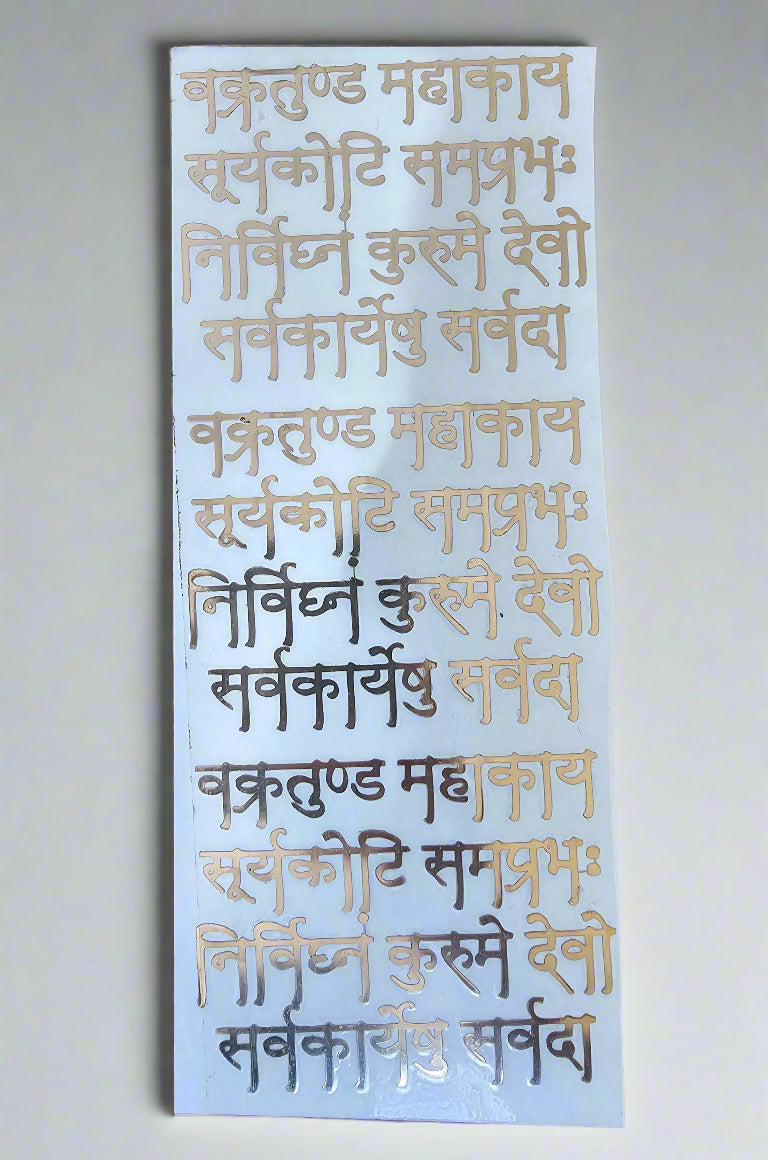 वक्रतुण्ड महाकाय
सूर्यकोटि समप्रभः
निर्विघ्नं कुरुमे देवो
सर्वकार्येषु सर्वदा
वक्रतुण्ड महाकाय
सूर्यकोटि समप्रभः
निर्विघ्नं कुरुमे देवो
सर्वकार्येषु सर्वदा
वक्रतुण्ड महाकाय
सूर्यकोटि समप्रभः
निर्विघ्नं कुरुमे देवो
सर्वकार्येषु सर्वदा